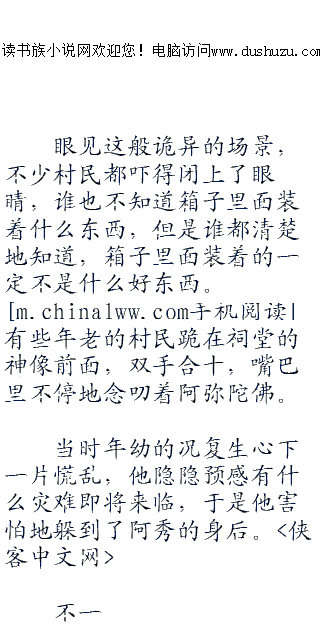 读书族小说网欢迎您！电脑访问www.dushuzu.com
眼见这般诡异的场景，
不少村民都吓得闭上了眼
睛，谁也不知道箱子里面装
着什么东西，但是谁都清楚
地知道，箱子里面装着的一
定不是什么好东西。
[m.chinalww.com手机阅读|
有些年老的村民跪在祠堂的
神像前面，双手合十，嘴巴
里不停地念叨着阿弥陀佛。
当时年幼的况复生心下
一片慌乱，他隐隐预感有什
么灾难即将来临，于是他害
怕地躲到了阿秀的身后。<侠
客中文网>
不一